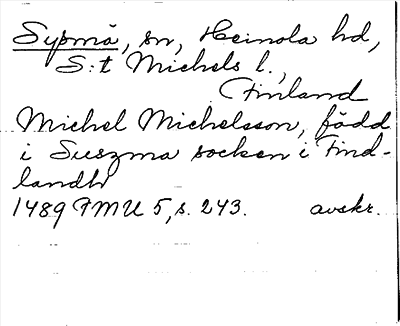 Sysmä, sn, Heinola hd,
S:t Michels l.,
Finland
Michel Michelsson, född
i Suszma socken i Find-
landh
1489 FMU 5, s. 243. avskr.